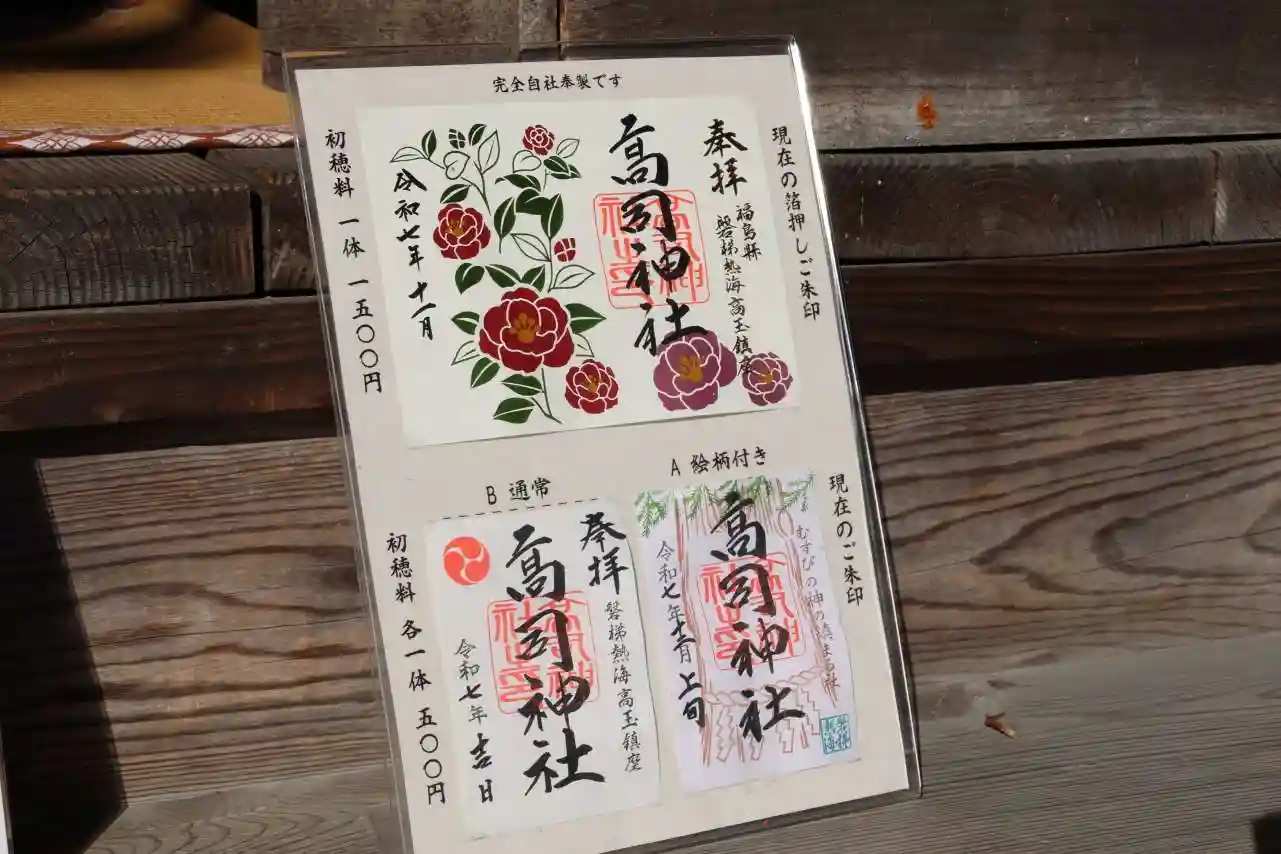 完全自社奉製です
現在の箔押しご朱印
奉拝
福島縣
磐梯熱海 高玉鎮座
高司神社
令和七年十二月
初穂料 一体 一五〇〇円
現在のご朱印
A 絵柄付き
むすびの神の鎮まる社
高司神社
令和七年十二月上旬
磐梯
熱海
B 通常
奉拝
磐梯熱海高玉鎮座
高司神社
令和七年吉日
初穂料 各一体 五〇〇円